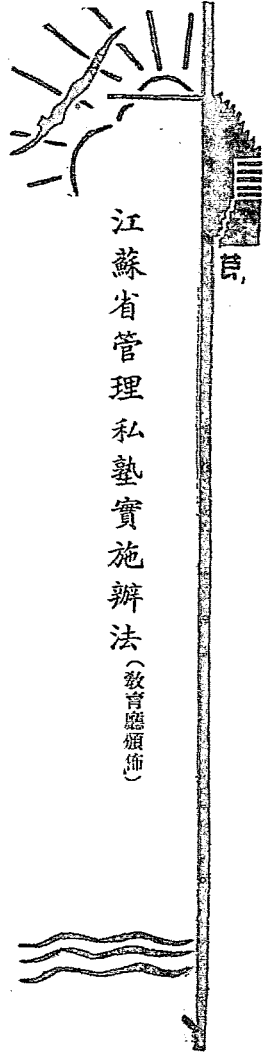 江蘇省管理私塾實施辦法（敎育廳頒佈）